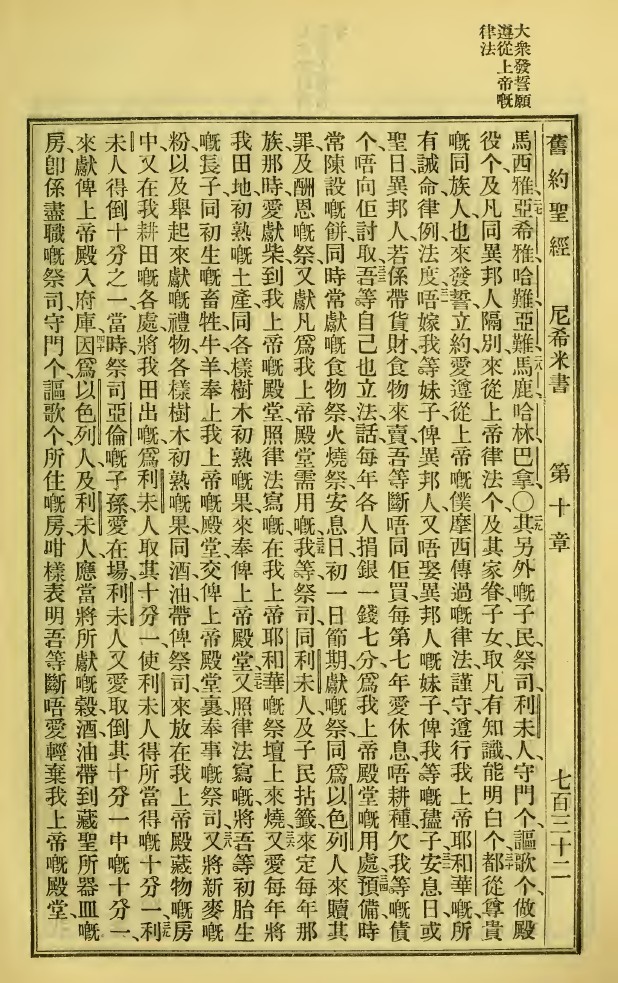 大衆發誓願
遵從上帝嘅
律法
舊約聖經 尼希米書 第十章 七百三十二
馬西雅、亞希雅、哈難、亞難、馬鹿、哈林、巴拿、○其另外嘅子民、祭司、利未人、守門个、謳歌个、做殿
役个、及凡同異邦人隔別來從上帝律法个、及其家眷子女、取凡有知識能明白个、都從尊貴
嘅同族人也來發誓立約、愛遵從上帝嘅僕摩西傳過嘅律法、謹守遵行我上帝耶和華嘅所
有誡命律例法度、唔嫁我等妹子俾異邦人、又唔娶異邦人嘅妹子俾我等嘅孻子、安息日或
聖日異邦人若係帶貨財食物來賣、吾等斷唔同佢買、每第七年愛休息唔耕種、欠我等嘅債
个、唔向佢討取、吾等自己也立法話、每年各人捐銀一錢七分、爲我上帝殿堂嘅用處、預備時
常陳設嘅餅、同時常獻嘅食物祭火燒祭、安息日初一日節期獻嘅祭、同爲以色列人來贖其
罪及酬恩嘅祭、又獻凡爲我上帝殿堂需用嘅、我等祭司、同利未人及子民拈籤來定、每年那
族那時愛獻柴到我上帝嘅殿堂、照律法寫嘅、在我上帝耶和華嘅祭壇上來燒、又愛每年將
我田地初熟嘅土產、同各樣樹木初熟嘅果、來奉俾上帝殿堂、又照律法寫嘅、將吾等初胎生
嘅長子、同初生嘅畜牲牛羊奉上我上帝嘅殿堂、交俾上帝殿堂裏奉事嘅祭司、又將新麥嘅
粉、以及舉起來獻嘅禮物、各樣樹木初熟嘅果、同酒油帶俾祭司、來放在我上帝殿藏物嘅房
中、又在我耕田嘅各處、將我田出嘅、爲利未人取其十分一、使利未人得所當得嘅十分一、利
未人得倒十分之一、當時祭司亞倫嘅子孫愛在場、利未人又愛取倒其十分一中嘅十分一、
來獻俾上帝殿入府庫、因爲以色列人及利未人應當將所獻嘅穀酒油帶到藏聖所器皿嘅
房、卽係盡職嘅祭司、守門个、謳歌个、所住嘅房、咁樣表明吾等斷唔愛輕棄我上帝嘅殿堂、